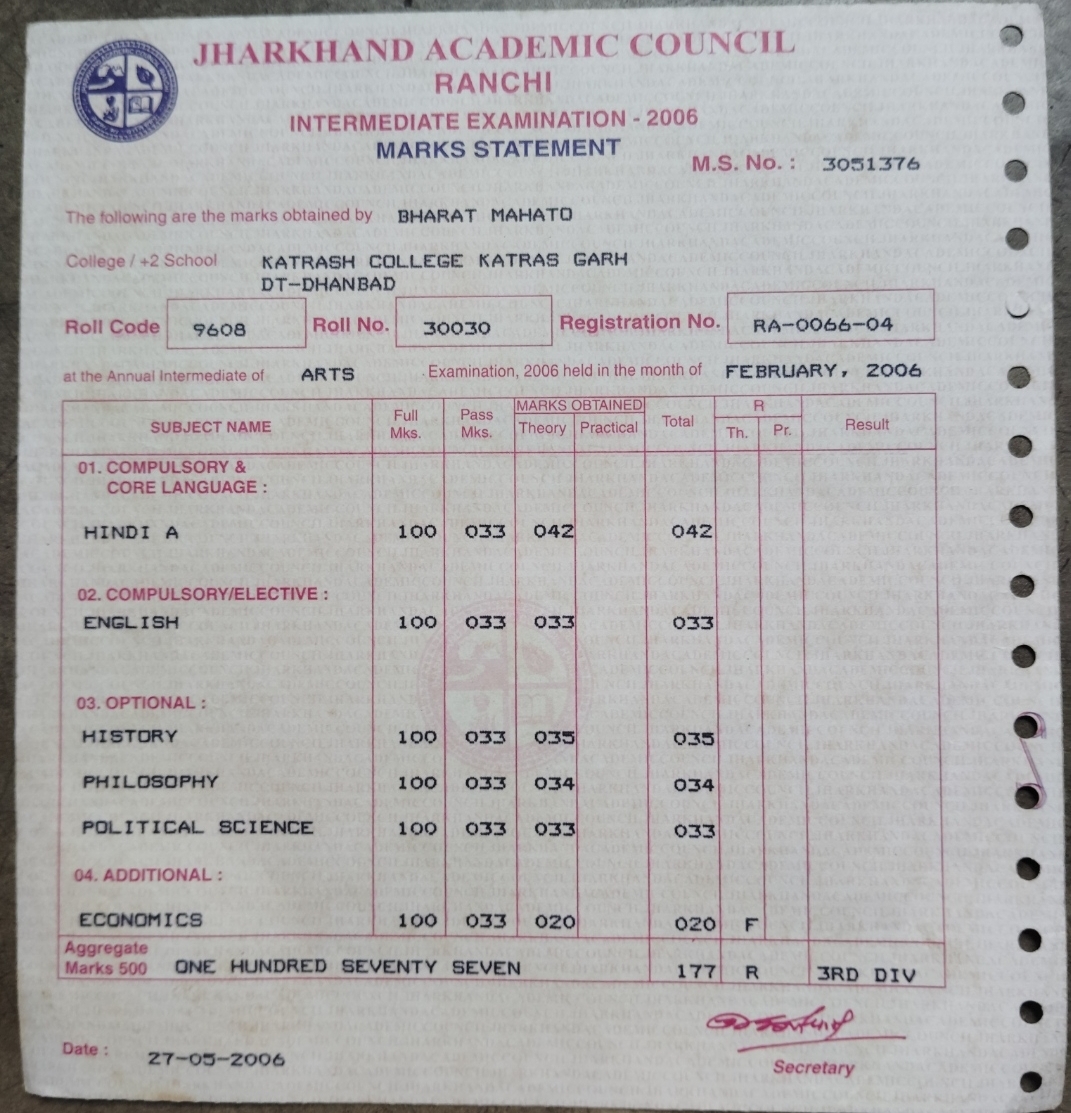 JHARKHAND ACADEMIC COUNCIL
RANCHI
INTERMEDIATE EXAMINATION - 2006
MARKS STATEMENT
M.S. No. : 3051376
The following are the marks obtained by BHARAT MAHATO
College / +2 School KATRASH COLLEGE KATRAS GARH
DT-DHANBAD
Roll Code 9608 Roll No. 30030 Registration No. RA-0066-04
at the Annual Intermediate of ARTS Examination, 2006 held in the month of FEBRUARY, 2006
SUBJECT NAME Full Mks. Pass Mks. MARKS OBTAINED Theory Practical Total R Th. Pr. Result
01. COMPULSORY &
CORE LANGUAGE :
HINDI A 100 033 042 042
02. COMPULSORY/ELECTIVE :
ENGLISH 100 033 033 033
03. OPTIONAL :
HISTORY 100 033 035 035
PHILOSOPHY 100 033 034 034
POLITICAL SCIENCE 100 033 033 033
04. ADDITIONAL :
ECONOMICS 100 033 020 020 F
Aggregate
Marks 500 ONE HUNDRED SEVENTY SEVEN 177 R 3RD DIV
Date : 27-05-2006
Secretary